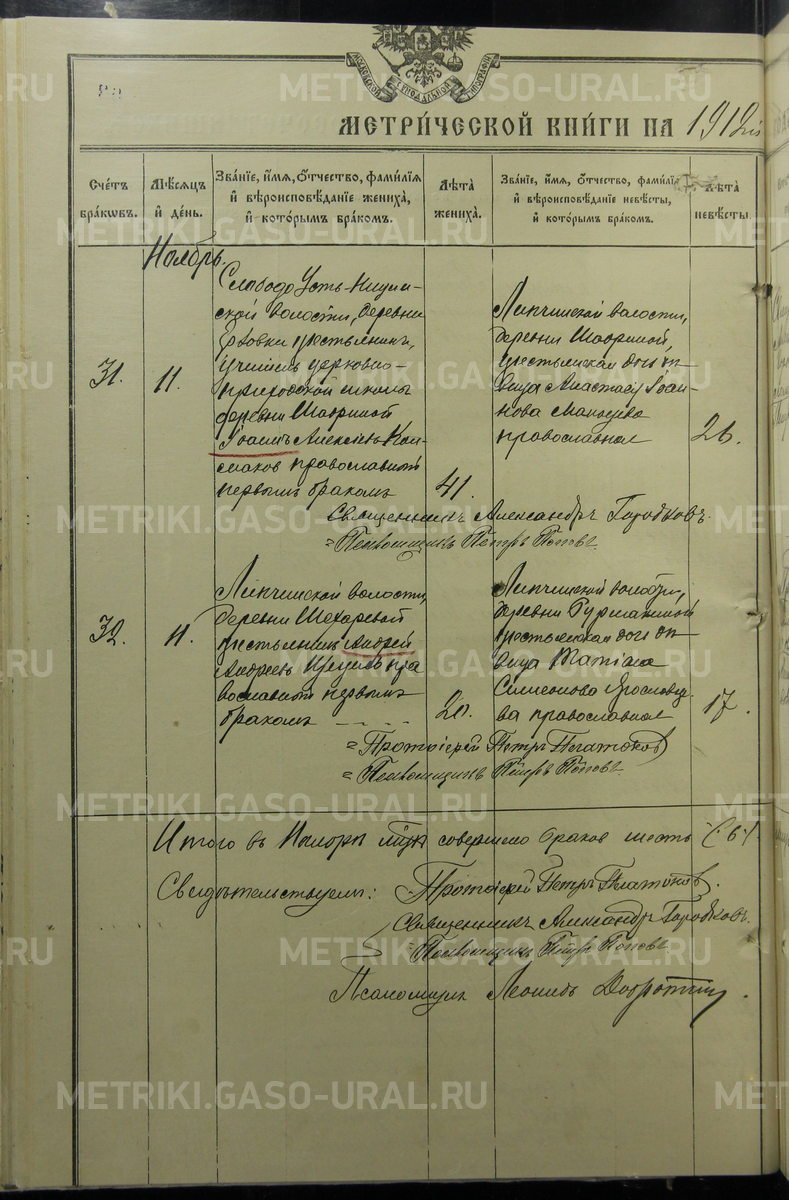 МОСКОВСКОЙ СѴНОДАЛЬНОЙ ТИПОГРАФІИ
МЕТРИ́ЧЕСКОЙ КНИ́ГИ НА 1912й
Сче́тъ бра́кѡвъ.
Мѣ́сяцъ и҆ де́нь.
Зва́нїе, и҆́мѧ, ѻ҆́тчество, фами́лїѧ и҆ вѣроисповѣ́данїе жениха̀, и҆ кото́рымъ бра́комъ.
Лѣ́та жениха̀.
Зва́нїе, и҆́мѧ, ѻ҆́тчество, фами́лїѧ и҆ вѣроисповѣ́данїе невѣ́сты, и҆ кото́рымъ бра́комъ.
Лѣ́та невѣ́сты.
Ноябрь
31.
11.
Слободо Усть-Ницин-
ской волости, деревни
крестьянинъ,
учитель церковно-
приходской школы
деревни Шавриной
Іоаннъ Алексѣевъ Кол-
маков православный
первымъ бракомъ
41.
Липчинской волости,
деревни Шавриной,
крестьянская дочь дѣ-
вица Анастасія Іоан-
нова
православная
26.
Священникъ Александръ Городковъ.
Псаломщикъ Петръ Поповъ
32.
11.
Липчинской волости,
деревни Шехаревой
крестьянинъ Андрей
Андреевъ пра
вославный первымъ
бракомъ
20.
Липчинской волости,
деревни
крестьянская дочь дѣ-
вица
Симеонова
ва православная
17.
Протоіерей Петръ Платоновъ
Псаломщикъ Петръ Поповъ
Итого въ Ноябрѣ мцѣ совершено браковъ шесть (6).
Свидѣтельствуемъ: Протоіерей Петръ Платоновъ.
Священникъ Александръ Городковъ.
Псаломщикъ Петръ Поповъ
Псаломщикъ Леонидъ
METRIKI.GASO-URAL.RU